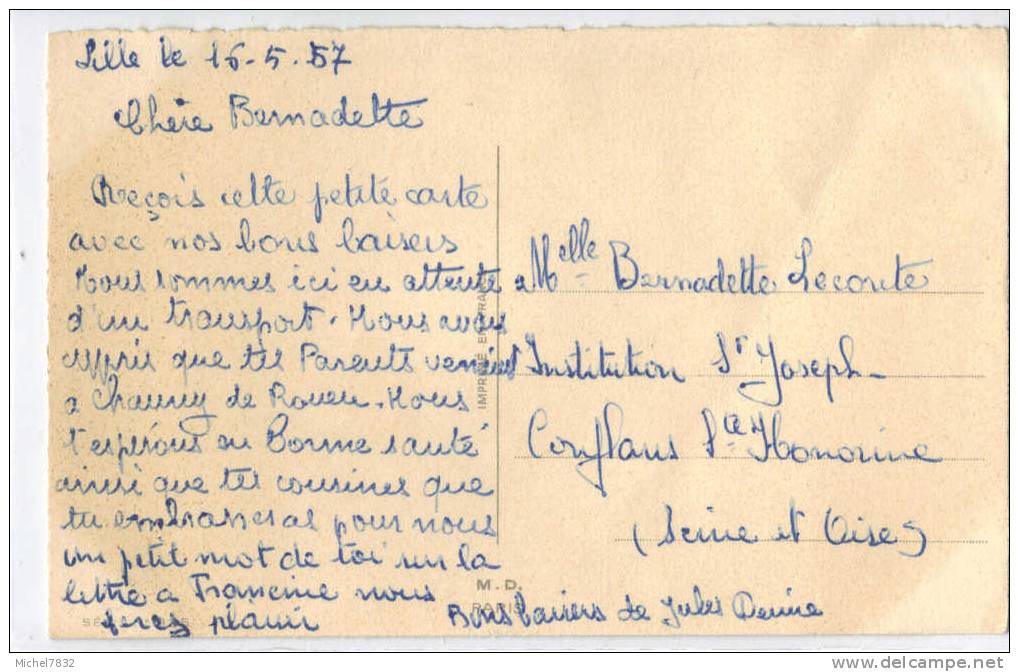 Lille le 16-5.57
Chère Bernadette
Reçois cette petite carte
avec nos bons baisers
Nous sommes ici en attente
d'un transport. Nous avons
appris que tes Parents venient
a Chauny de Rouen. Nous
t'espérons en Bonne santé
ainsi que tes cousines que
tu embrasseras pour nous
un petit mot de toi sur la
lettre a Francine nous
ferez plaisir
Melle Bernadette Leconte
Institution St Joseph
Conflans Ste Honorine
(Seine et Oise)
Bons baisers de Jules Denise
IMPRIMÉ EN FRANCE
M.D.
PARIS
Michel7832
http://www.delcampe.net